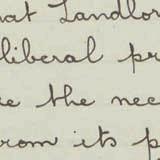 hat Landlor
liberal pr
e the nec
rom its p